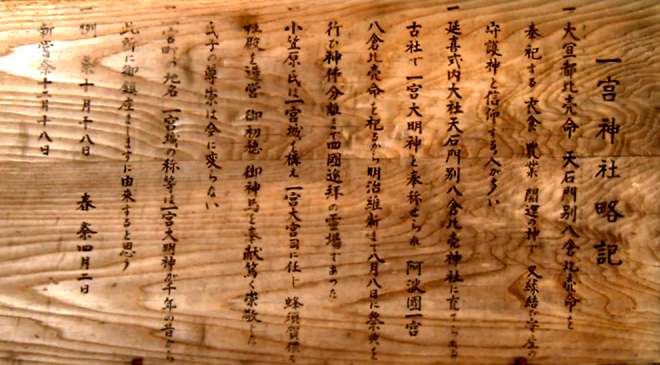 一宮神社略記
一 大宜都比売命 天石門別八倉比売命を
奉祀する 衣食 農業 開運の神で 又縁結び 安産の
守護神と信仰する人が多い
一 延喜式内大社天石門別八倉比売神社に充てられる
古社で 一宮大明神と奉称せられ 阿波国一宮
八倉比売命を祀るから明治維新まで八月八日に祭典を
行ひ神佛分離まで四國遥拝の霊場であった
小笠原氏は一宮城を構え 一宮大宮司に任し 蜂須賀侯も
社殿を造営 御初穂 御神馬を奉献篤く崇敬した
氏子の尊崇は今に変らない
一 宮町の地名 一宮城の称等は一宮大明神が千年の昔から
此所に御鎮座ましますに由来すると思う
一 例祭十月十八日 春祭四月二日
新嘗祭十一月十八日